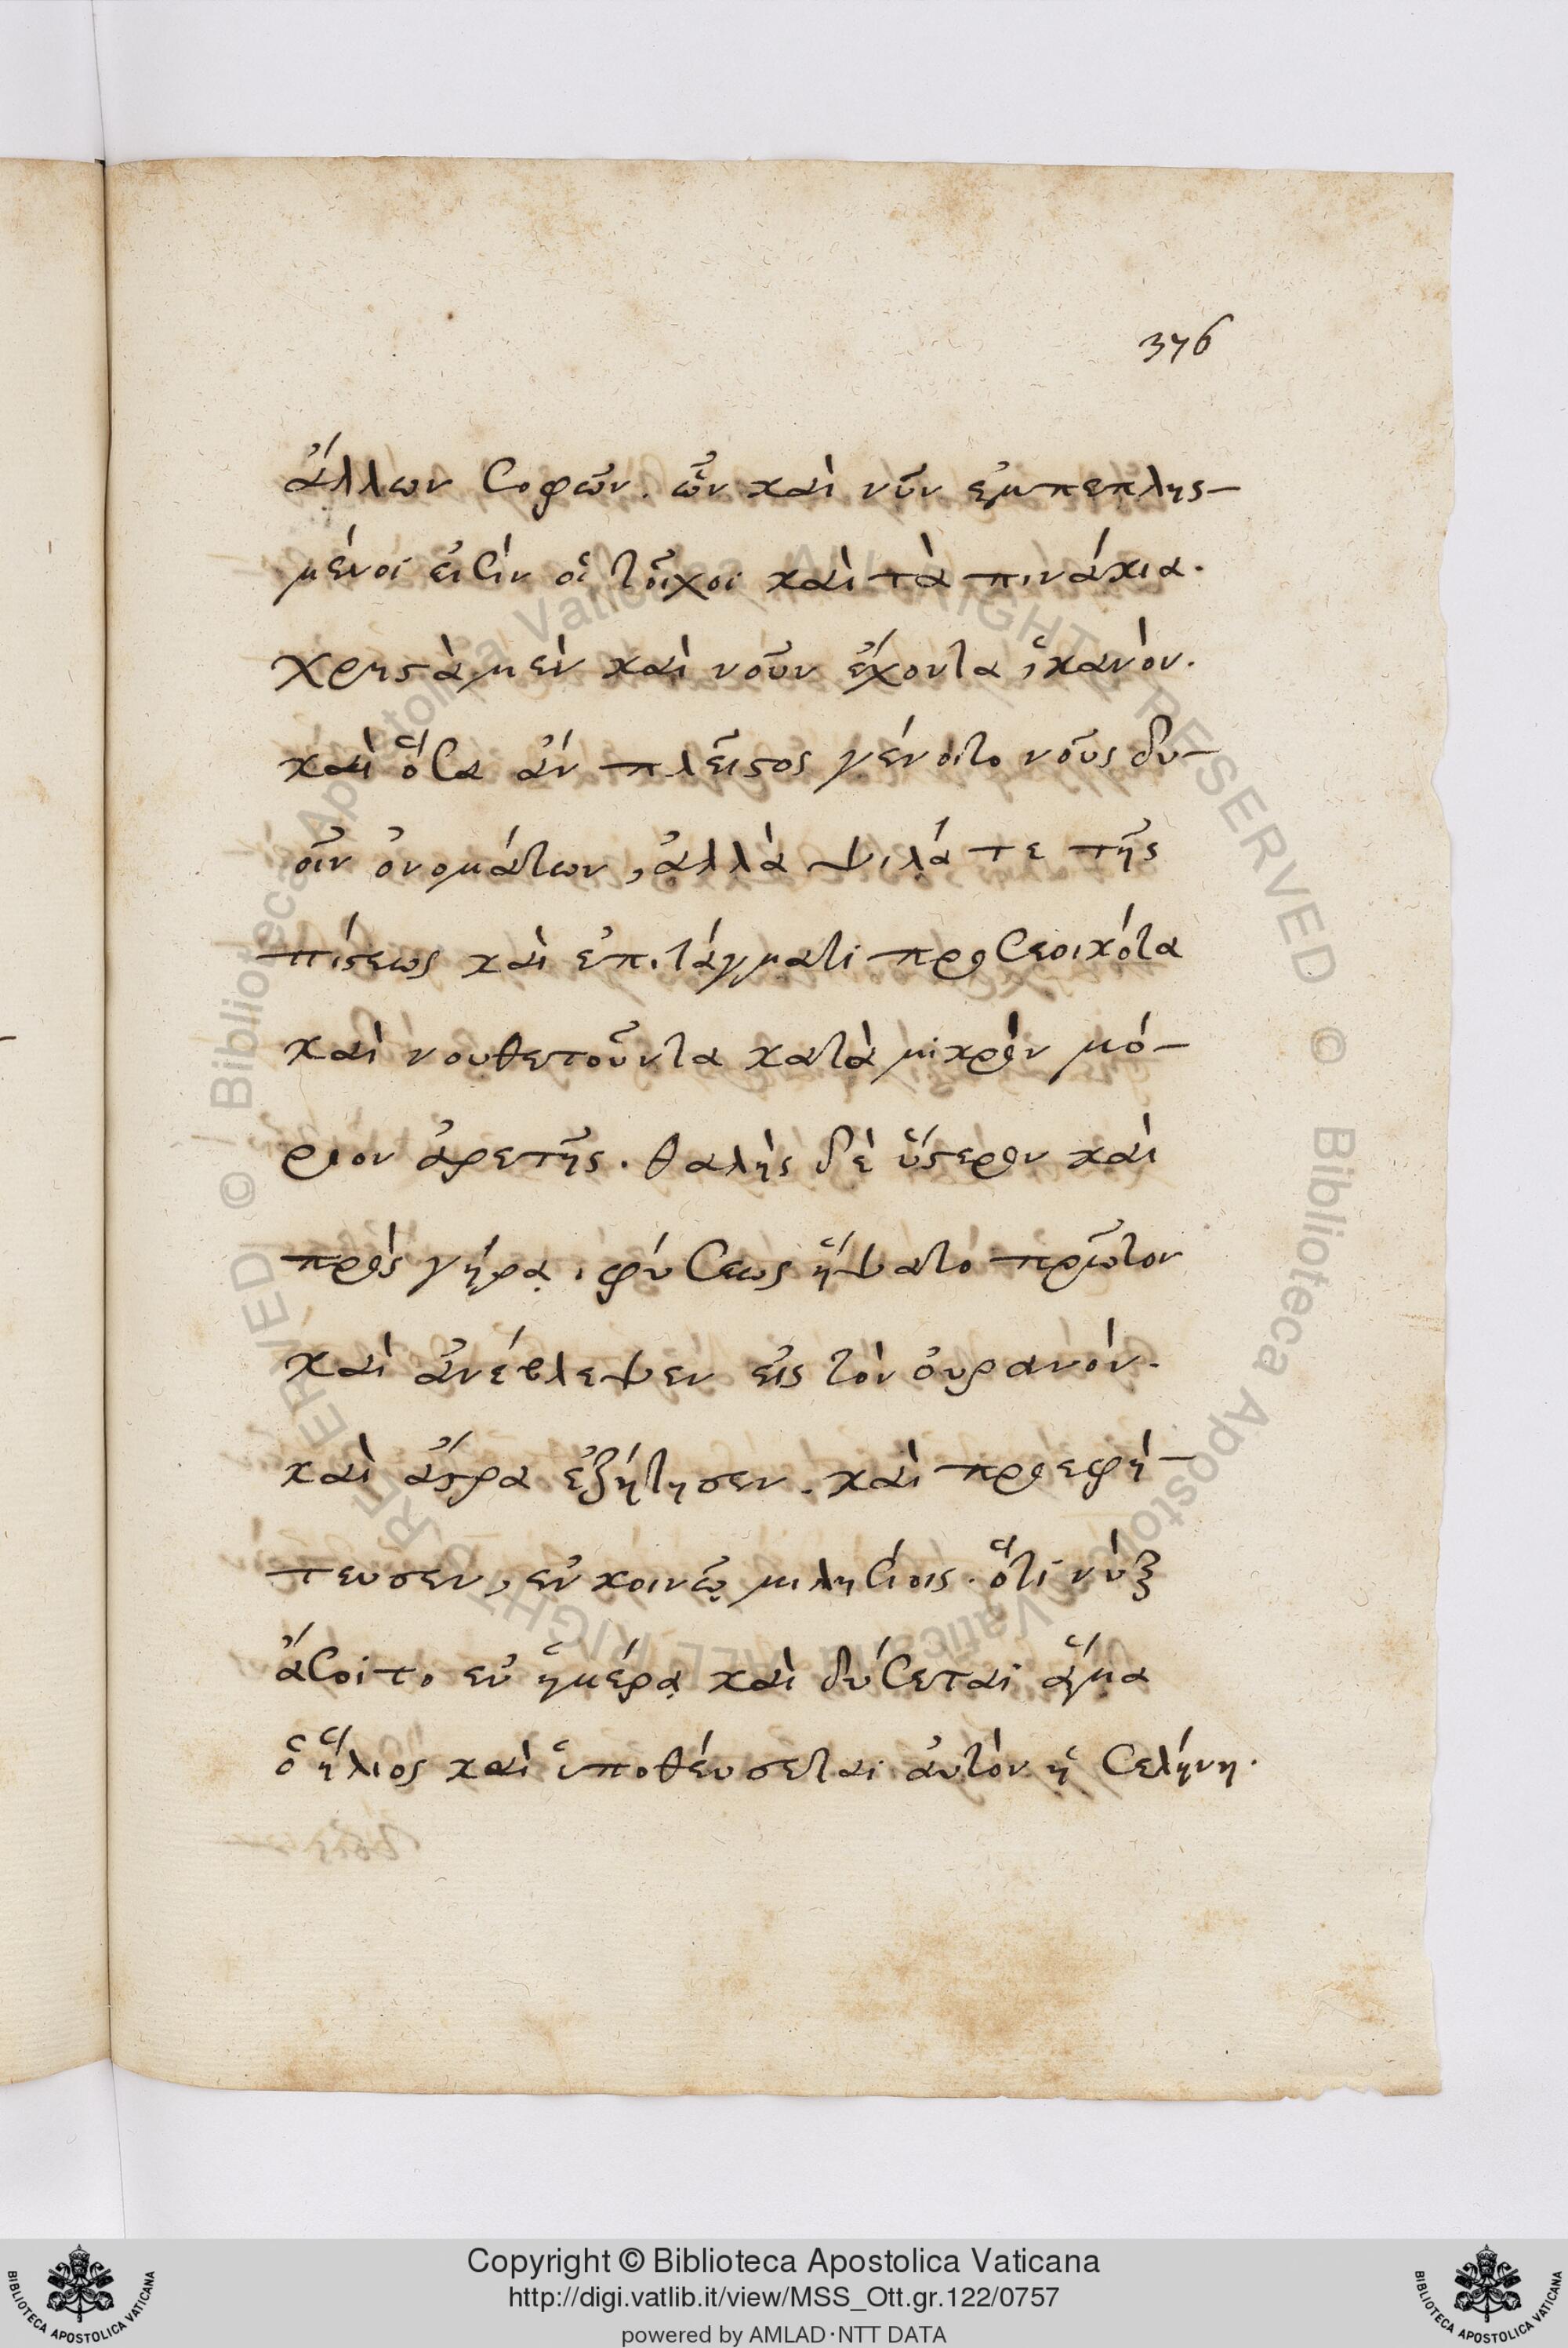 376
ἄλλων σοφῶν. ὧν καὶ νῦν ἐμπεπλησ-
μένοι εἰσὶν οἱ τοῖχοι καὶ τὰ πινάκια.
χρηστὰ μὲν καὶ νοῦν ἔχοντα ἱκανὸν.
καὶ ὅσα ἂν πλεῖστος γένοιτο νοῦς δυ-
οῖν ὀνομάτων, ἀλλὰ ψιλά τε τῆς
πίστεως καὶ ἐπιτάγματι προσεοικότα
καὶ νουθετοῦντα κατὰ μικρὸν μό-
ριον ἀρετῆς. θαλὴς δὲ ὕστερον καὶ
πρὸς γήρᾳ, φύσεως ἥψατο πρῶτον
καὶ ἀνέβλεψεν εἰς τὸν οὐρανὸν.
καὶ ἄστρα ἐζήτησεν. καὶ προεφή-
τευσεν, ἐν κοινῷ μιλησίοις. ὅτι νὺξ
ἄσοιτο ἐν ἡμέρᾳ καὶ δύσεται ἅμα
ὁ ἥλιος καὶ ὑποθεύσεται αὐτὸν ἡ σελήνη.
© Biblioteca Apostolica Vaticana ALL RIGHTS RESERVED © Biblioteca Apostolica Vaticana ALL RIGHTS RESERVED
Copyright © Biblioteca Apostolica Vaticana
http://digi.vatlib.it/view/MSS_Ott.gr.122/0757
powered by AMLAD·NTT DATA
BIBLIOTECA APOSTOLICA VATICANA
BIBLIOTECA APOSTOLICA VATICANA